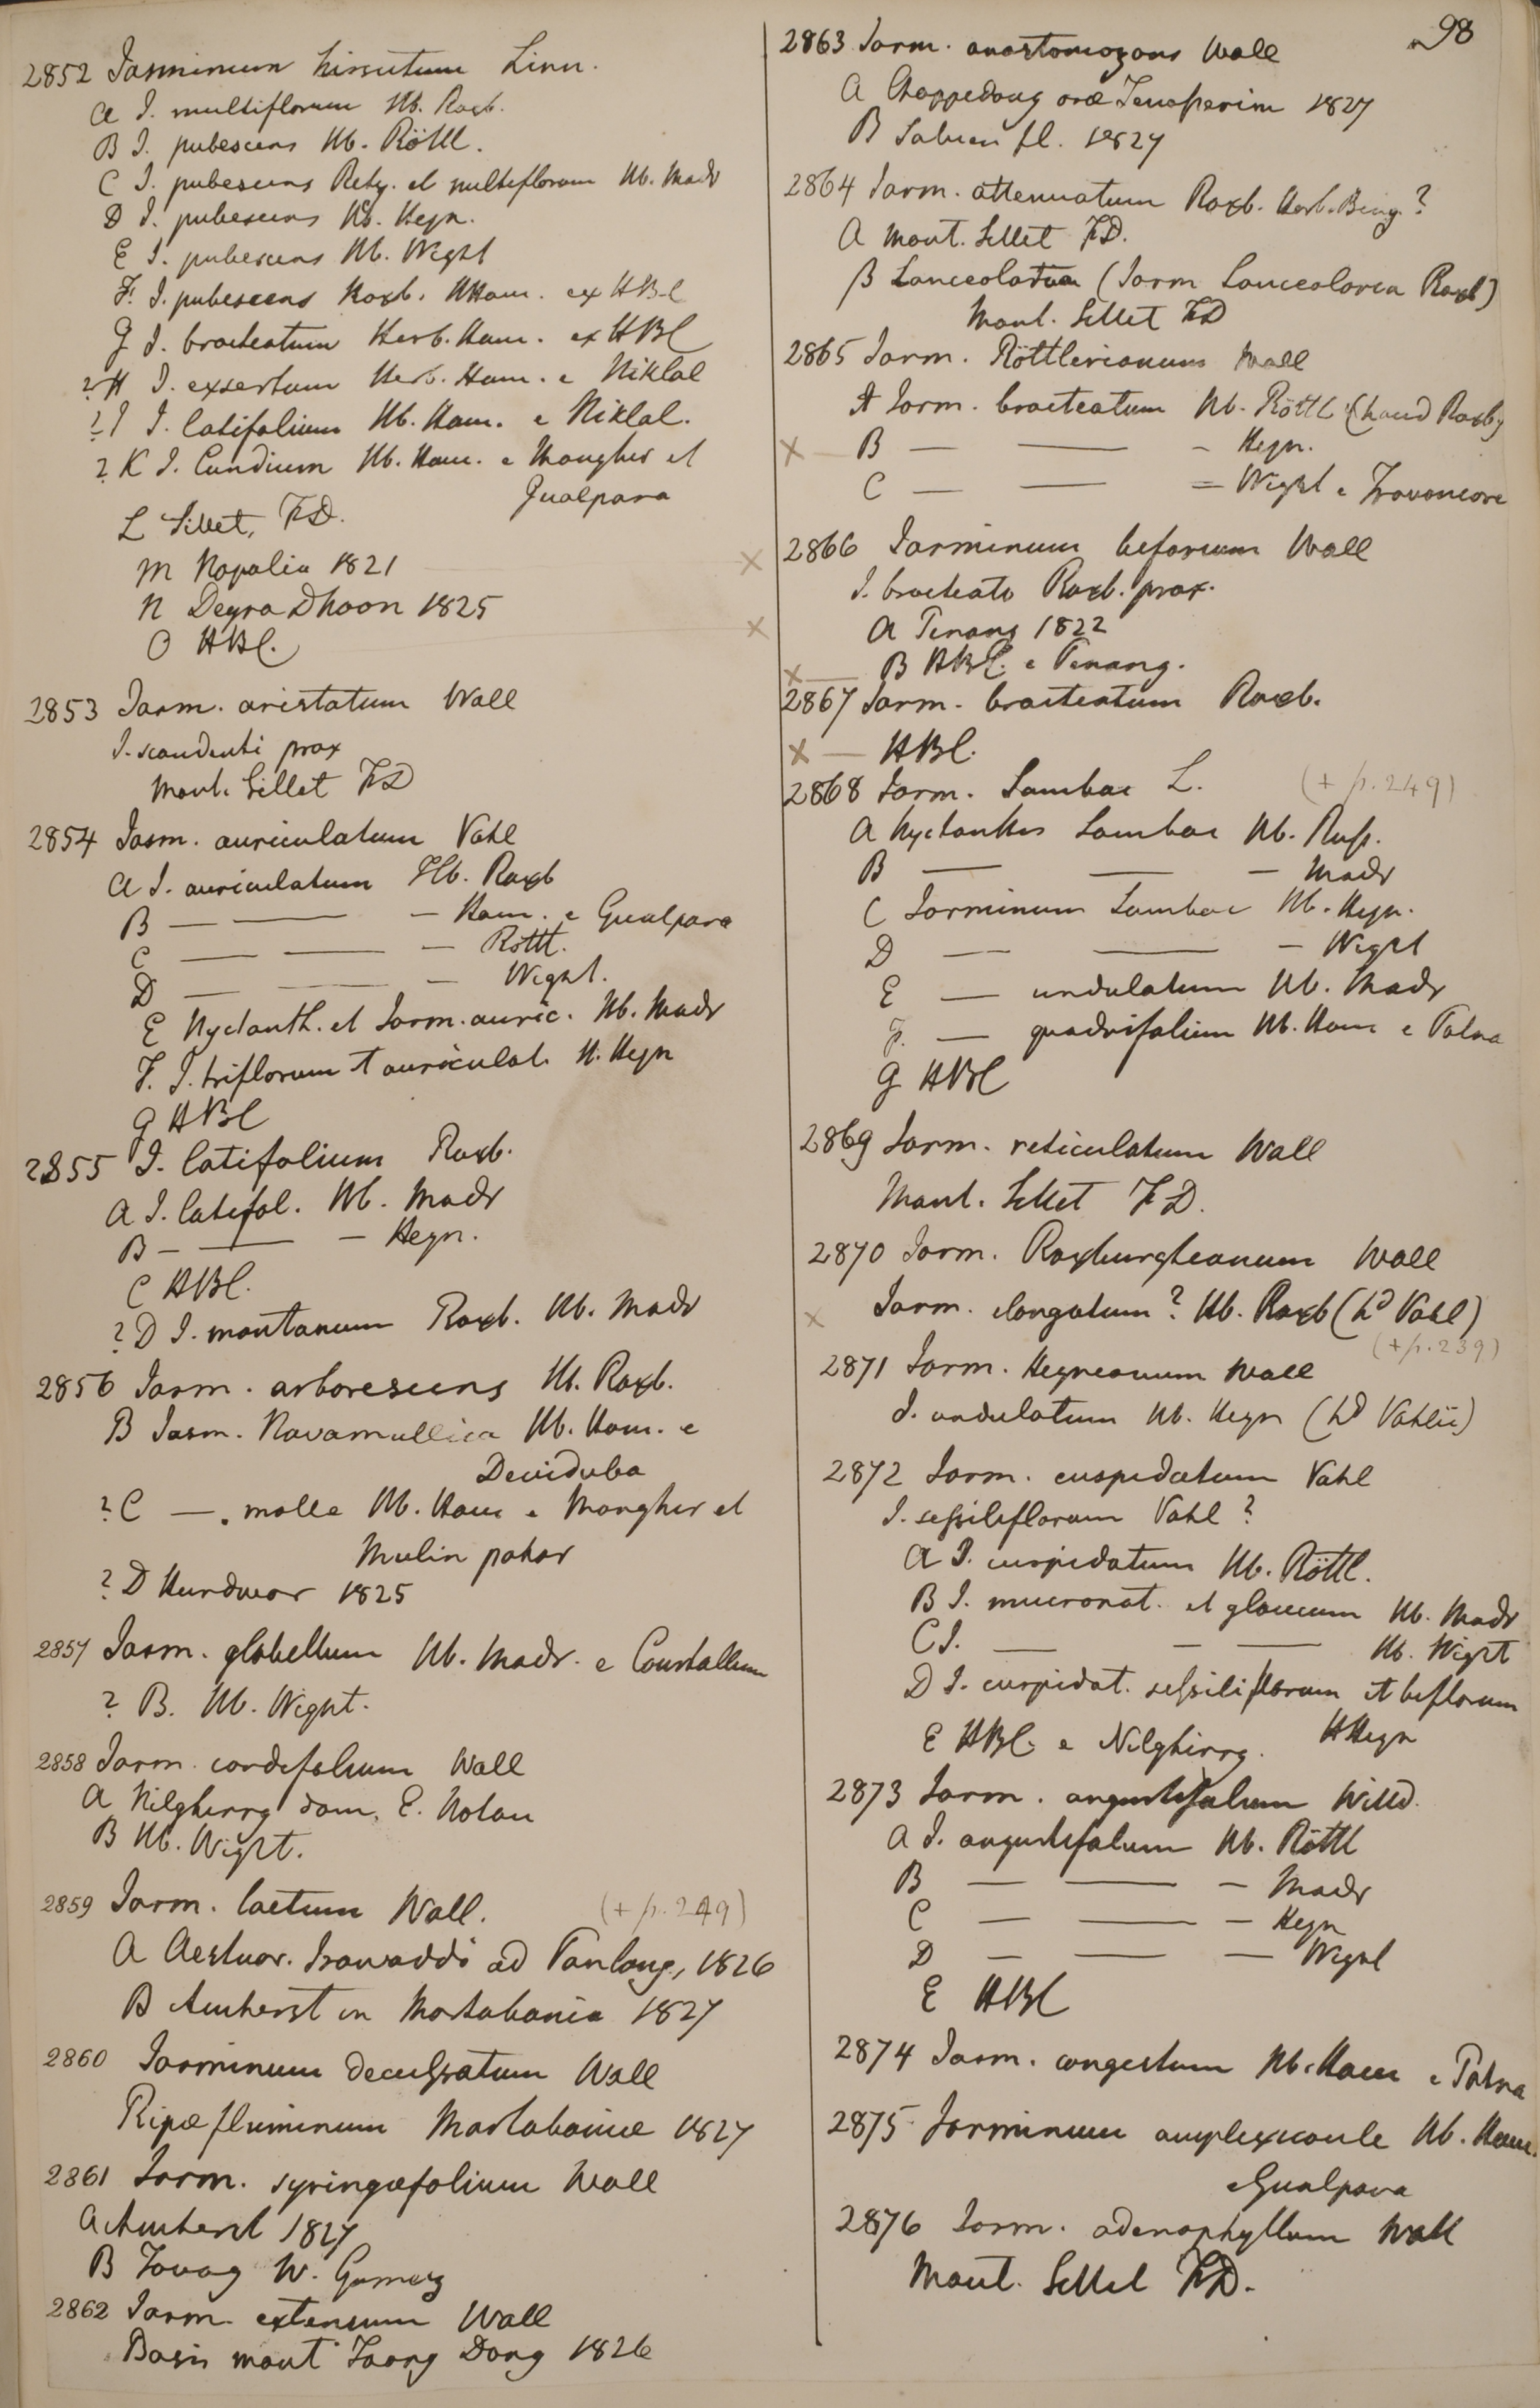 98
2852 Jasminum hirsutum Linn.
A J. multiflorum Hb. Roxb.
B J. pubescens Hb. Röttl.
C J. pubescens Retz. et multiflorum Hb. Madr
D J. pubescens Hb. Heyn.
E J. pubescens Hb. Wight
F. J. pubescens Roxb. HHam. ex HBC
G J. bracteatum Herb. Ham. ex HBC
? H J. exsertum Herb. Ham. e Niklal
? I J. latifolium Hb. Ham. e Niklal.
? K J. Cundium Hb. Ham. e Mongher et
Gualpara
L Sillet, FD.
M Napalia 1821
N Deyra Dhoon 1825
O HBC.
2853 Jasm. aristatum Wall
J. scandenti prox
Mont. Sillet FD
2854 Jasm. auriculatum Vahl
A J. auriculatum Hb. Roxb
B — — — Ham. e Gualpara
C — — — Röttl.
D — — — Wight.
E Nyctanth. et Jasm. auric. Hb. Madr
F. J. triflorum & auriculat. H. Heyn
G HBC
2855 J. latifolium Roxb.
A J. latifol. Hb. Madr
B — — — Heyn.
C HBC.
? D J. montanum Roxb. Hb. Madr
2856 Jasm. arborescens Hb. Roxb.
B Jasm. Navamullica Hb. Ham. e
Deviduba
? C —. molle Hb. Ham e Mongher et
Mulin pahar
? D Hurdwar 1825
2857 Jasm. glabellum Hb. Madr. e Courtallum
? B. Hb. Wight.
2858 Jasm. cordifolium Wall
A Nilgherry dom. E. Nolan
B Hb. Wight.
2859 Jasm. laetum Wall. (+ p. 249)
A Aestuar. Irawaddi ad Panlang, 1826
B Amherst in Martabania 1827
2860 Jasminum decussatum Wall
Ripæ fluminum Martabaniæ 1827
2861 Jasm. syringæfolium Wall
A Amherst 1827
B Tavoy W. Gomez
2862 Jasm. extensum Wall
Basis mont Toong Dong 1826
2863 Jasm. anastomozans Wall
A Chappedong oræ Tenasserim 1827
B Saluen fl. 1827
2864 Jasm. attenuatum Roxb. Herb. Beng. ?
A Mont. Sillet FD.
β Lanceolatum (Jasm Lanceolaria Roxb)
Mont. Sillet FD
2865 Jasm. Röttlerianum Wall
A Jasm. bracteatum Hb. Röttl (haud Roxb)
× B — — — Heyn.
C — — — Wight e Travancore
× 2866 Jasminum bifarium Wall
J. bracteato Roxb. prox.
× A Penang 1822
× B HBC. e Penang.
2867 Jasm. bracteatum Roxb.
× — HBC.
2868 Jasm. Sambac L. (+ p. 249)
A Nyctanthes Sambac Hb. Russ.
B — — — Madr
C Jasminum Sambac Hb. Heyn.
D — — — Wight
E — undulatum Hb. Madr
F. — quadrifolium Hb. Ham e Patna
G HBC
2869 Jasm. reticulatum Wall
Mont. Sillet FD.
2870 Jasm. Roxburghianum Wall
× Jasm. elongatum ? Hb. Roxb (hd Vahl)
(+ p. 239)
2871 Jasm. Heyneanum Wall
J. undulatum Hb. Heyn (hd Vahlii)
2872 Jasm. cuspidatum Vahl
J. sessiliflorum Vahl ?
A J. cuspidatum Hb. Röttl.
B J. mucronat. et glaucum Hb. Madr
C J. — — — Hb. Wight
D J. cuspidat. sessiliflorum et biflorum
HHeyn
E HBC. e Nilgherry.
2873 Jasm. angustifolium Willd.
A J. angustifolium Hb. Röttl
B — — — Madr
C — — — Heyn
D — — — Wight
E HBC
2874 Jasm. congestum Hb. Ham e Patna
2875 Jasminum amplexicaule Hb. Ham.
e Gualpara
2876 Jasm. adenophyllum Wall
Mont. Sillet FD.